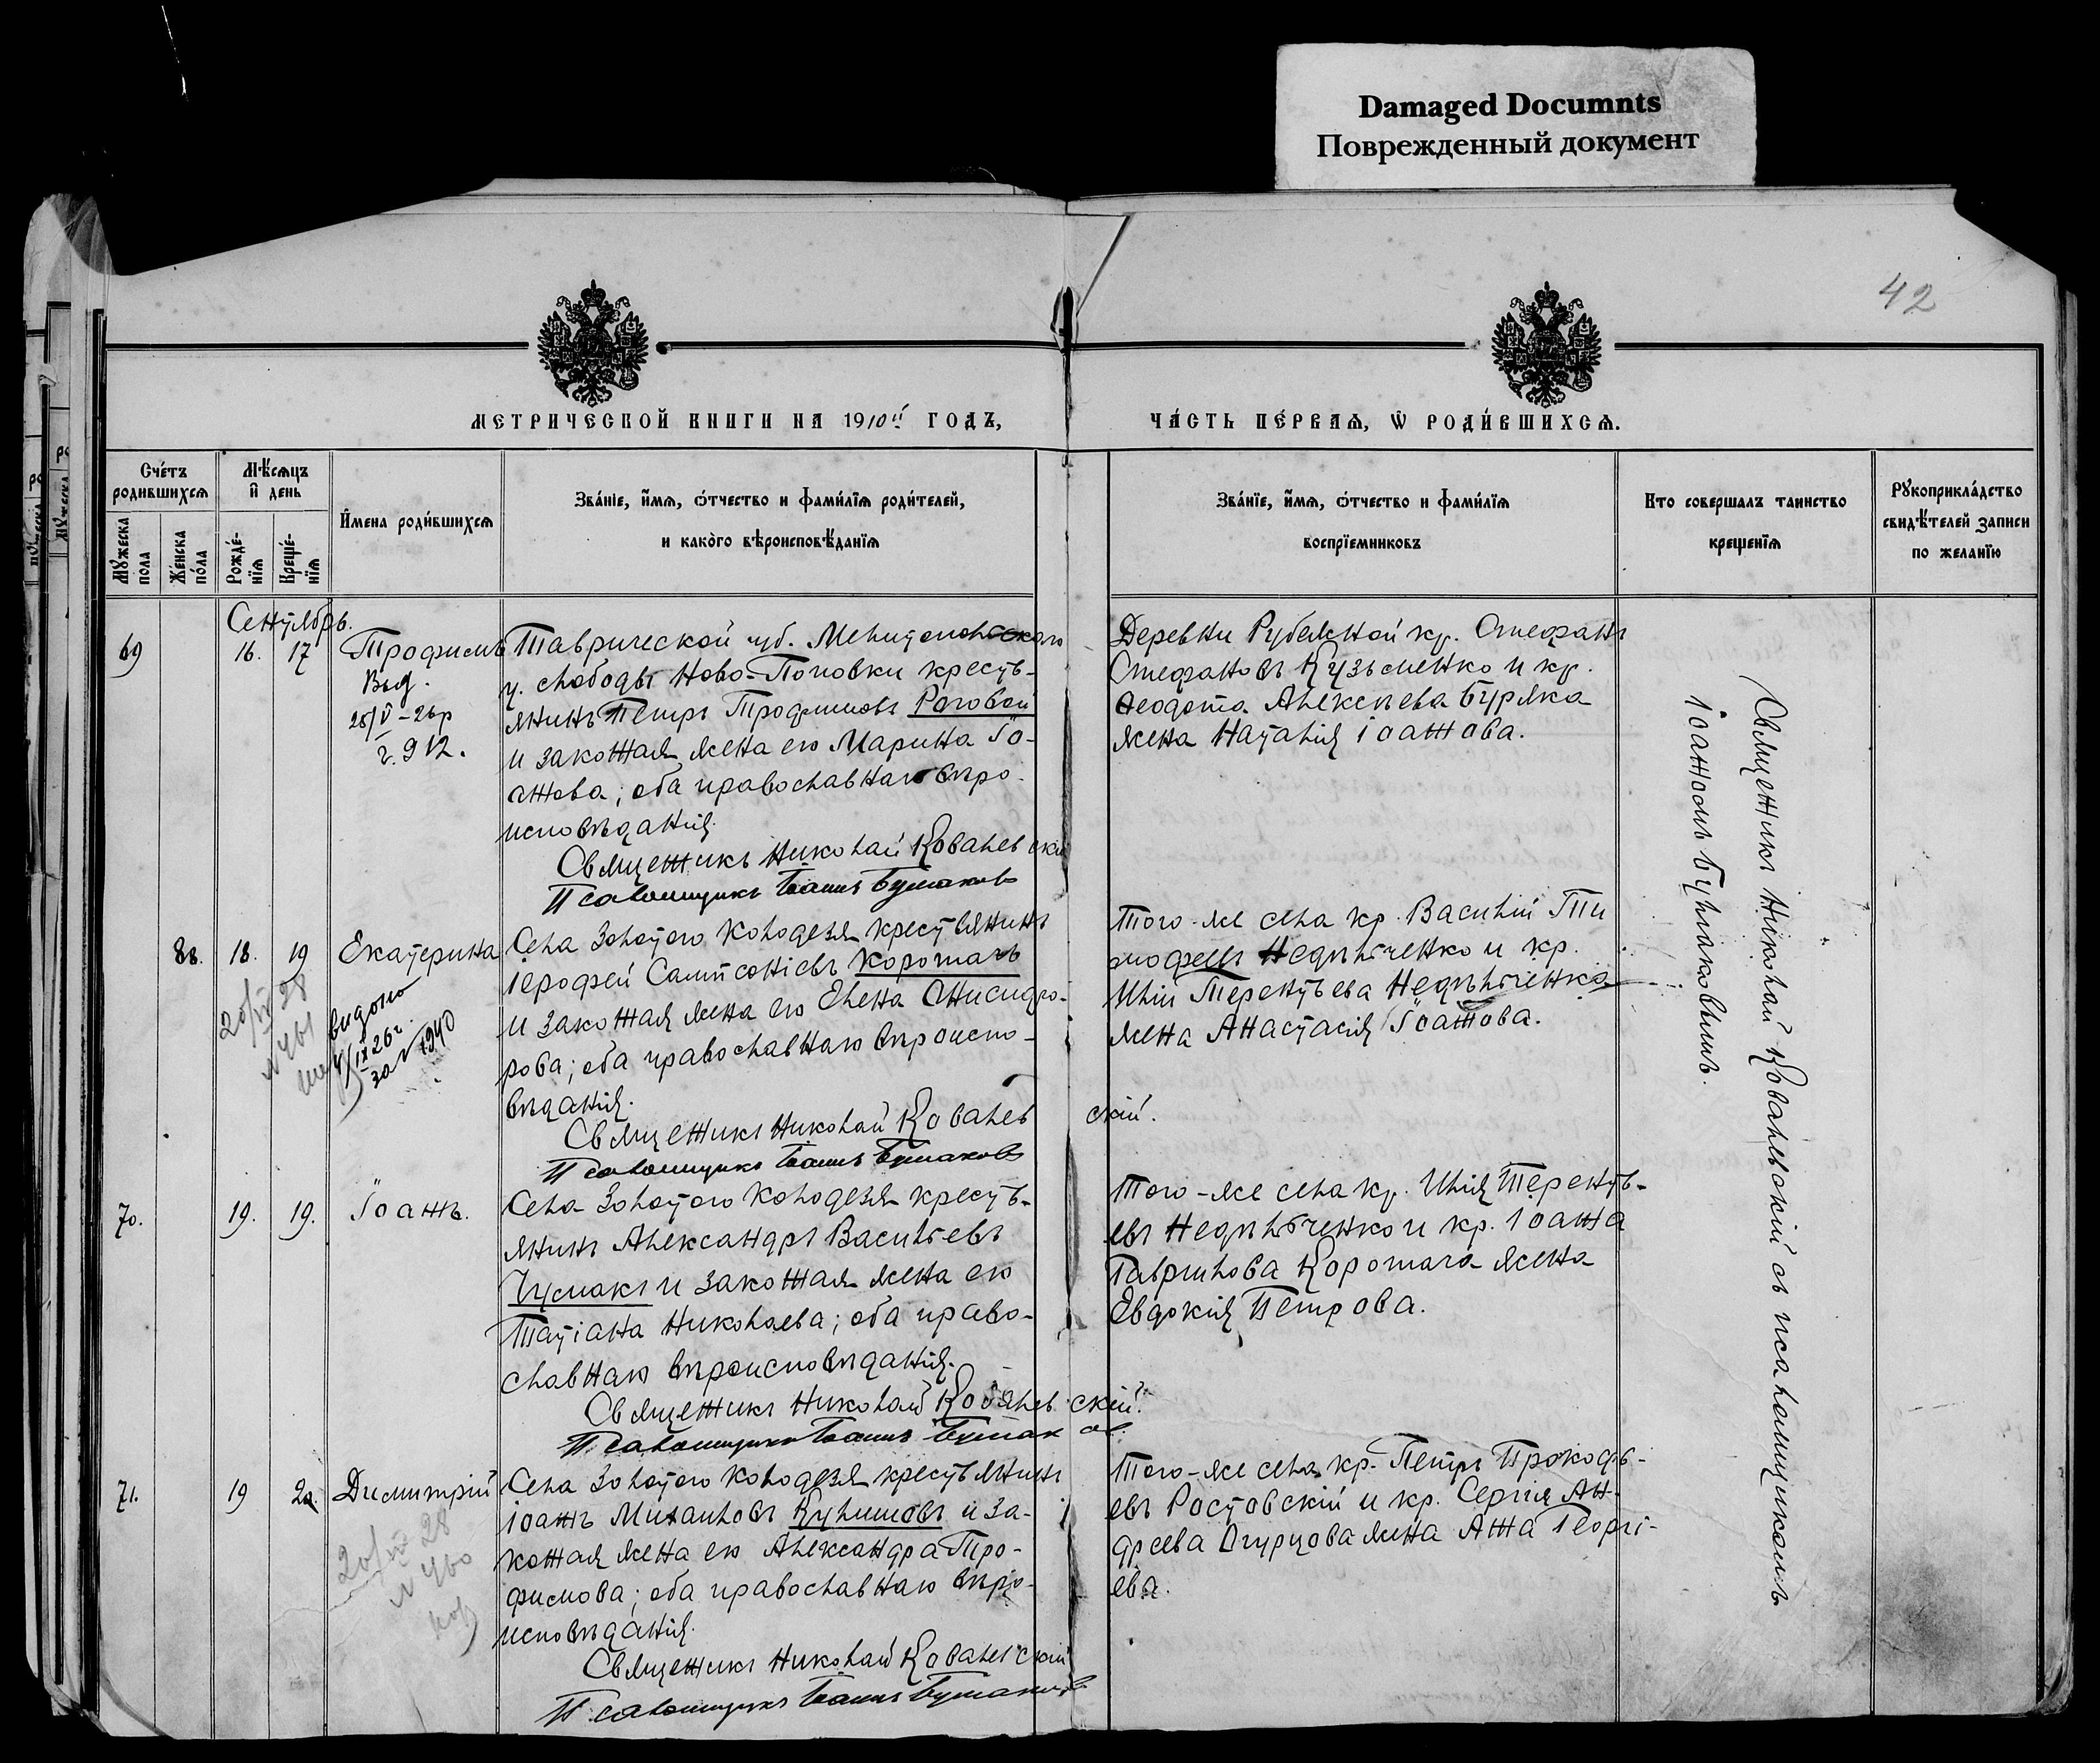 Damaged Documnts
Поврежденный документ
42
МЕТРИЧЕСКОЙ КНИГИ НА 1910й ГОДЪ,
ЧАСТЬ ПЕРВАЯ, Ѡ РОДИВШИХСЯ.
Счетъ родившихся
Мужеска пола
Женска пола
Мѣсяцъ и день
Рожденїя
Крещенїя
Имена родившихся
Званїе, имя, ѻтчество и фамилїя родителей,
и какого вѣроисповѣданїя
Званїе, имя, ѻтчество и фамилїя
воспрїемниковъ
Кто совершалъ таинство
крещенїя
Рукоприкладство
свидѣтелей записи
по желанїю
Сентябрь.
69
16.
17
Трофимъ
Выд.
25/V – 26р
г. 912.
Таврической губ. Мелитопольскаго
у. слободы Ново-Поповки кресть-
янинъ Петръ Трофимовъ Роговой
и законная жена его Марина Іо-
аннова; оба православнаго вѣро-
исповѣданія.
Священникъ Николай Ковалевскій
Псаломщикъ Іоаннъ Булаковъ
Деревни Рубежной кр. Стефанъ
Стефановъ Кузьменко и кр.
Ѳеодота Алексѣева Буряка
жена Наталія Іоаннова.
88.
18.
19
Екатерина
20/IV 28
N 461
видано
4/IX 26г.
за N 1940
Села Золотого Колодезя крестьянинъ
Іерофей Сампсоніевъ Коротачъ
и законная жена его Елена Онисидо-
рова; оба православнаго вѣроиспо-
вѣданія.
Священникъ Николай Ковалевскій.
Псаломщикъ Іоаннъ Булаковъ
Того-же села кр. Василій Ти
моѳеевъ Недѣльченко и кр.
Иліи Терентьева Недѣльченка
жена Анастасія Іоаннова.
70.
19.
19.
Іоаннъ.
Села Золотого Колодезя кресть-
янинъ Александръ Васильевъ
Чумакъ и законная жена его
Татіана Николаева; оба право-
славнаго вѣроисповѣданія.
Священникъ Николай Ковалевскій.
Псаломщикъ Іоаннъ Булаковъ.
Того-же села кр. Илія Теренть-
евъ Недѣльченко и кр. Іоанна
Гаврилова Коротача жена
Евдокія Петрова.
71.
19
20.
Димитрій
N 460
Села Золотого Колодезя крестьянинъ
Іоаннъ Михаиловъ Кулишовъ и за-
конная жена его Александра Тро-
фимова; оба православнаго вѣро-
исповѣданія.
Священникъ Николай Ковалевскій
Псаломщикъ Іоаннъ Булаковъ
Того-же села кр. Петръ Прокофь-
евъ Ростовскій и кр. Сергія Ан-
дреева Огурцова жена Анна Георгі-
ева.
Священникъ Николай Ковалевскій съ псаломщикомъ
Іоанномъ Булаковымъ.